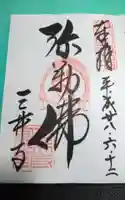 奉拝
平成廿八・六・十二
弥勒佛
三井寺